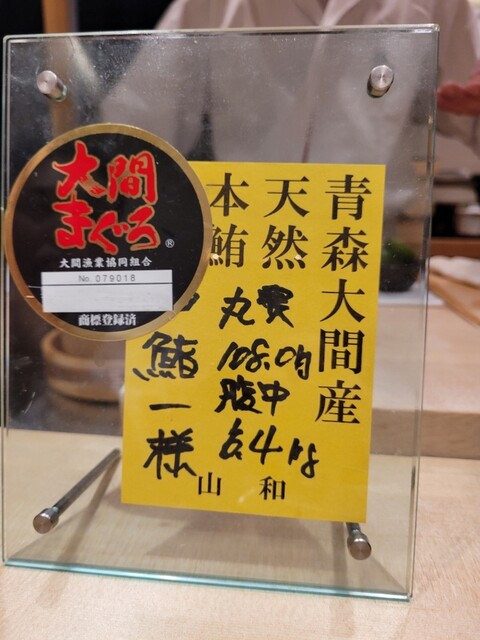 大間
まぐろ®
大間漁業協同組合
No. 079018
商標登録済
青森大間産
天然
本鮪
丸
108.0
腹中
6.4 kg
鮨一様
山和